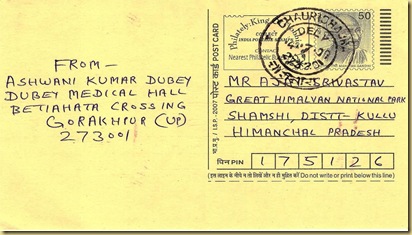 FROM-
ASHWANI KUMAR DUBEY
DUBEY MEDICAL HALL
BETIAHATA CROSSING
GORAKHPUR (UP)
273001
पोस्ट कार्ड POST CARD
I.S.P.-2007
Philately: King
COLLECT
INDIA POSTAGE STAMPS
CONTACT
Nearest Philatelic
50
DELY
MR AJIT SRIVASTAV
GREAT HIMALVAN NATIONAL PARK
SHAMSHI, DISTT- KULLU
HIMANCHAL PRADESH
पिन PIN 175126
(इस लाइन के नीचे न तो लिखें और न ही मुद्रित करें Do not write or print below this line)